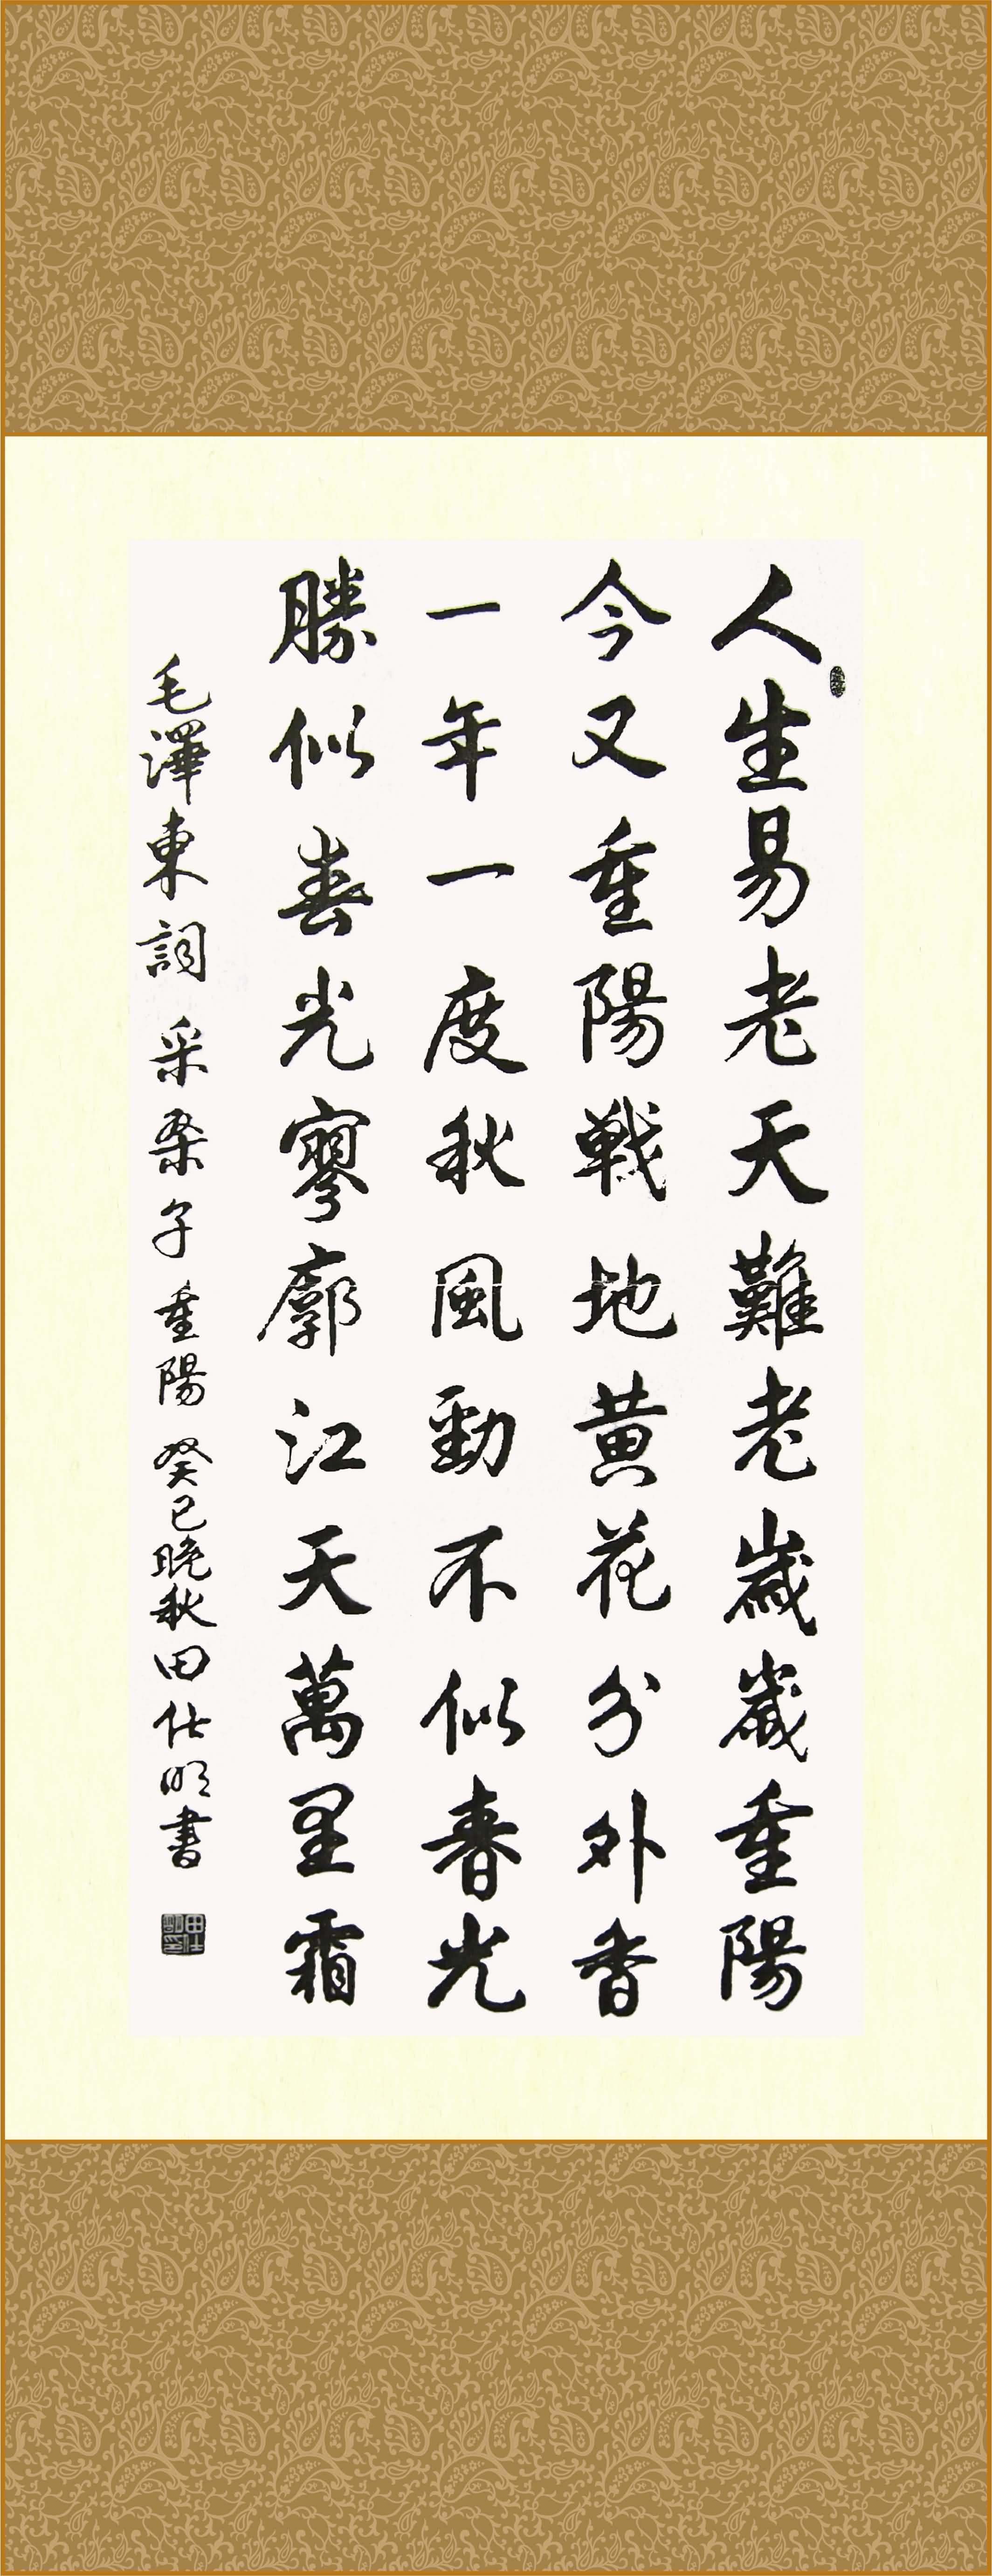 人生易老天難老歲歲重陽
今又重陽戰地黄花分外香
一年一度秋風勁不似春光
勝似春光寥廓江天萬里霜
毛澤東詞 采桑子 重陽 癸巳晚秋田仕明書